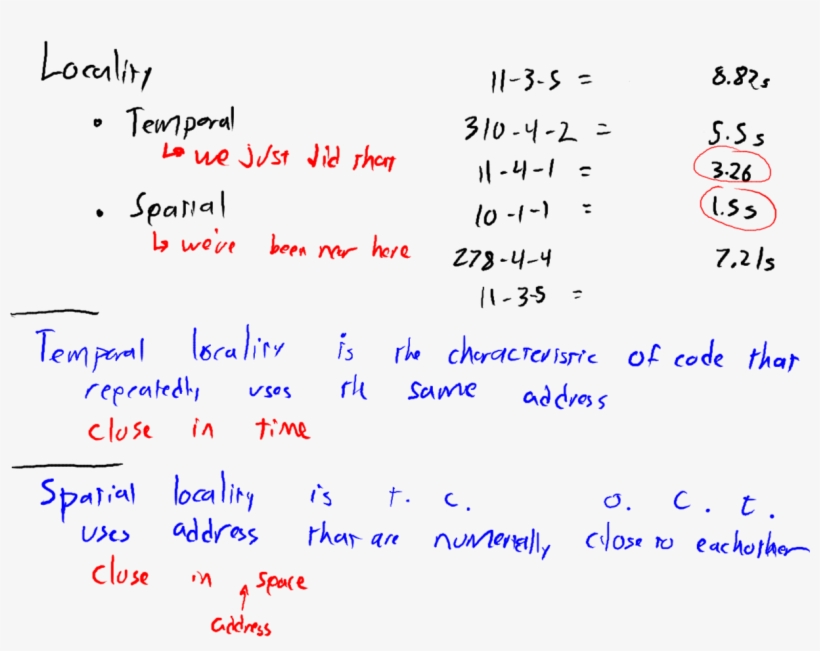 Locality
11-3-5 = 8.82s
• Temporal 310-4-2 = 5.5s
↳ we just did that 11-4-1 = 3.26
• Spatial 10-1-1 = 1.5s
↳ we've been near here 278-4-4 7.21s
11-3-5 =
Temporal locality is the characteristic of code that
repeatedly uses the same address
close in time
Spatial locality is t. c. o. c. t.
uses address that are numerally close to eachother
close in space
address